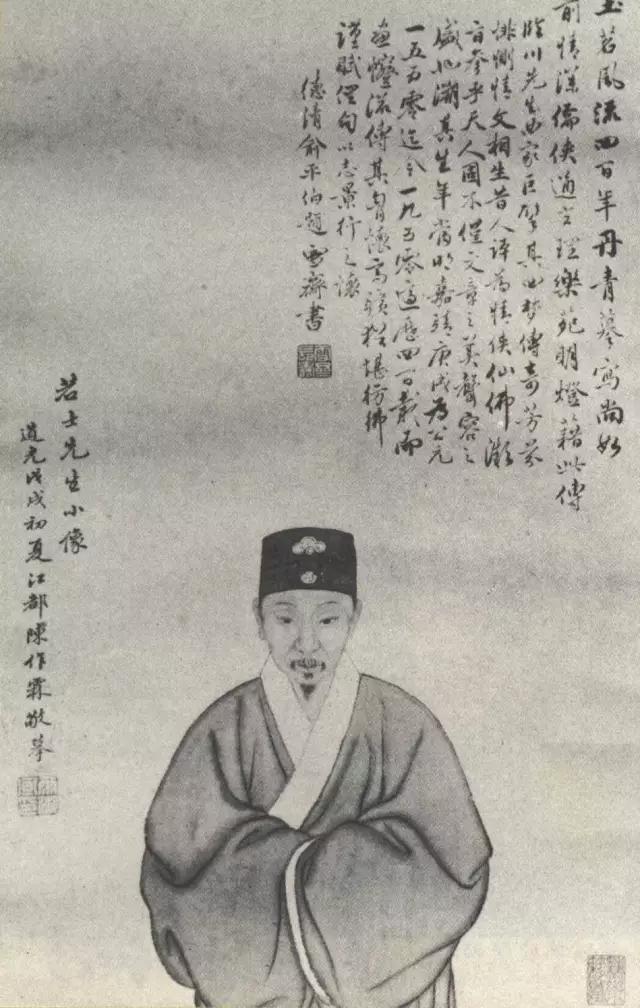 玉茗風流四百年丹青摹寫尚如
前情深儒俠通玄理樂苑明燈藉此傳
臨川先生曲家巨擘其四夢傳奇芳芬
悱惻情文相生昔人評為情俠仙佛
參乎天人固不僅文章之美聲容之
盛也溯其生年當明嘉靖庚戌為公元
一五五零迄今一九五零適歷四百載而
流傳其胷懷高躅猶堪彷彿
謹賦俚句以志景行之懷
德清俞平伯題雪齋書
若士先生小像
道光戊戌初夏江都陳作霖敬摹